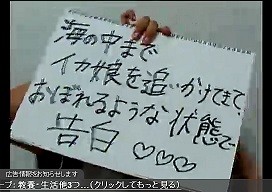 海の中まで
イカ娘を追いかけてきて
おぼれるような状態で
告白♡♡♡
広告情報をお知らせします
ープ: 教養・生活他3つ…(クリックしてもっと見る)